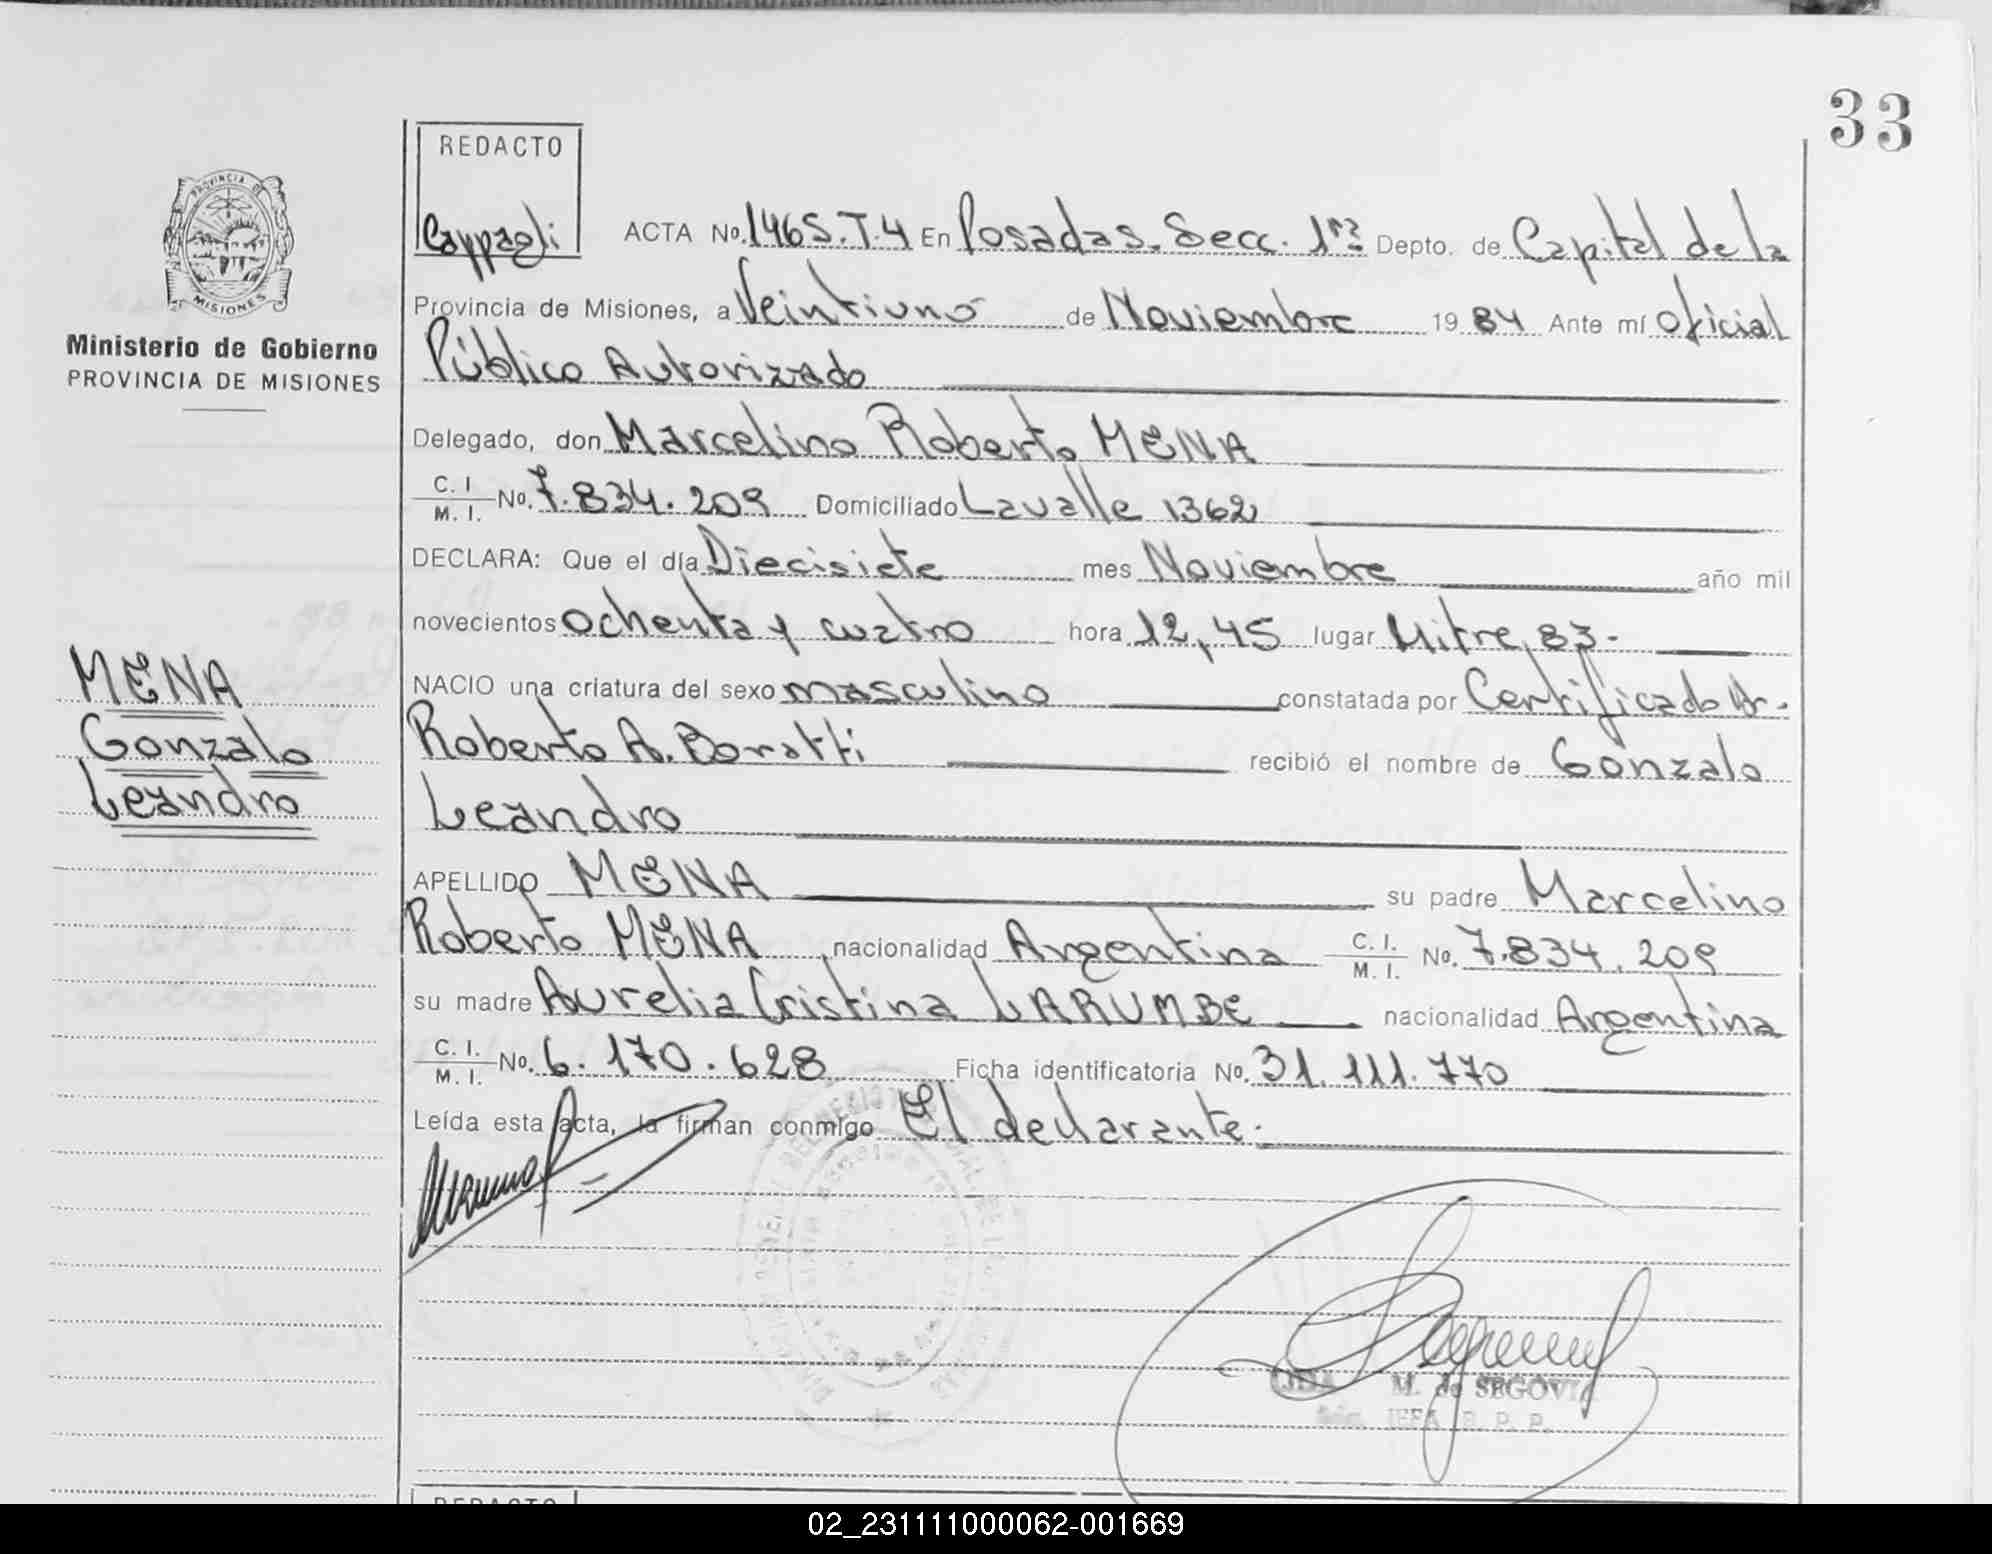 33
REDACTO
Cappagli
PROVINCIA DE
MISIONES
Ministerio de Gobierno
PROVINCIA DE MISIONES
ACTA No. 1465.T.4 En Posadas. Secc. 1ra Depto. de Capital de la
Provincia de Misiones, a Veintiuno de Noviembre 19 84 Ante mí Oficial
Público Autorizado
Delegado, don Marcelino Roberto MENA
C. I.
M. I. No. 7.834.209 Domiciliado Lavalle 1362
DECLARA: Que el día Diecisiete mes Noviembre año mil
novecientos Ochenta y cuatro hora 12,45 lugar Mitre 83.-
NACIO una criatura del sexo masculino constatada por Certificado Dr.
Roberto A. Boratti recibió el nombre de Gonzalo
Leandro
APELLIDO MENA su padre Marcelino
Roberto MENA, nacionalidad Argentina C. I. M. I. No. 7.834.209
su madre Aurelia Cristina LARUMBE nacionalidad Argentina
C. I.
M. I. No. 6.170.628 Ficha identificatoria No. 31.111.770
Leída esta acta, la firman conmigo El declarante.
MENA
Gonzalo
Leandro
M. de SEGOVIA
JEFA R. P. P.
REDACTO
02_231111000062-001669